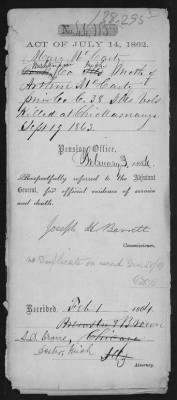 188295
No.
ACT OF JULY 14, 1862.
Mary McCarty
Washington
Co Mother of
Arthur McCarty
priv Co C. 38 Ills Vols
Killed at Chickamauga
Sept 19 1863.
Pension Office,
February 3, 1864
Respectfully referred to the Adjutant
General, for official evidence of service
and death.
Joseph H Barrett
Commissioner.
No Duplicate on record
Received, Feb 1 1864
Brown
Chicago
Mich
Ills
Attorney.